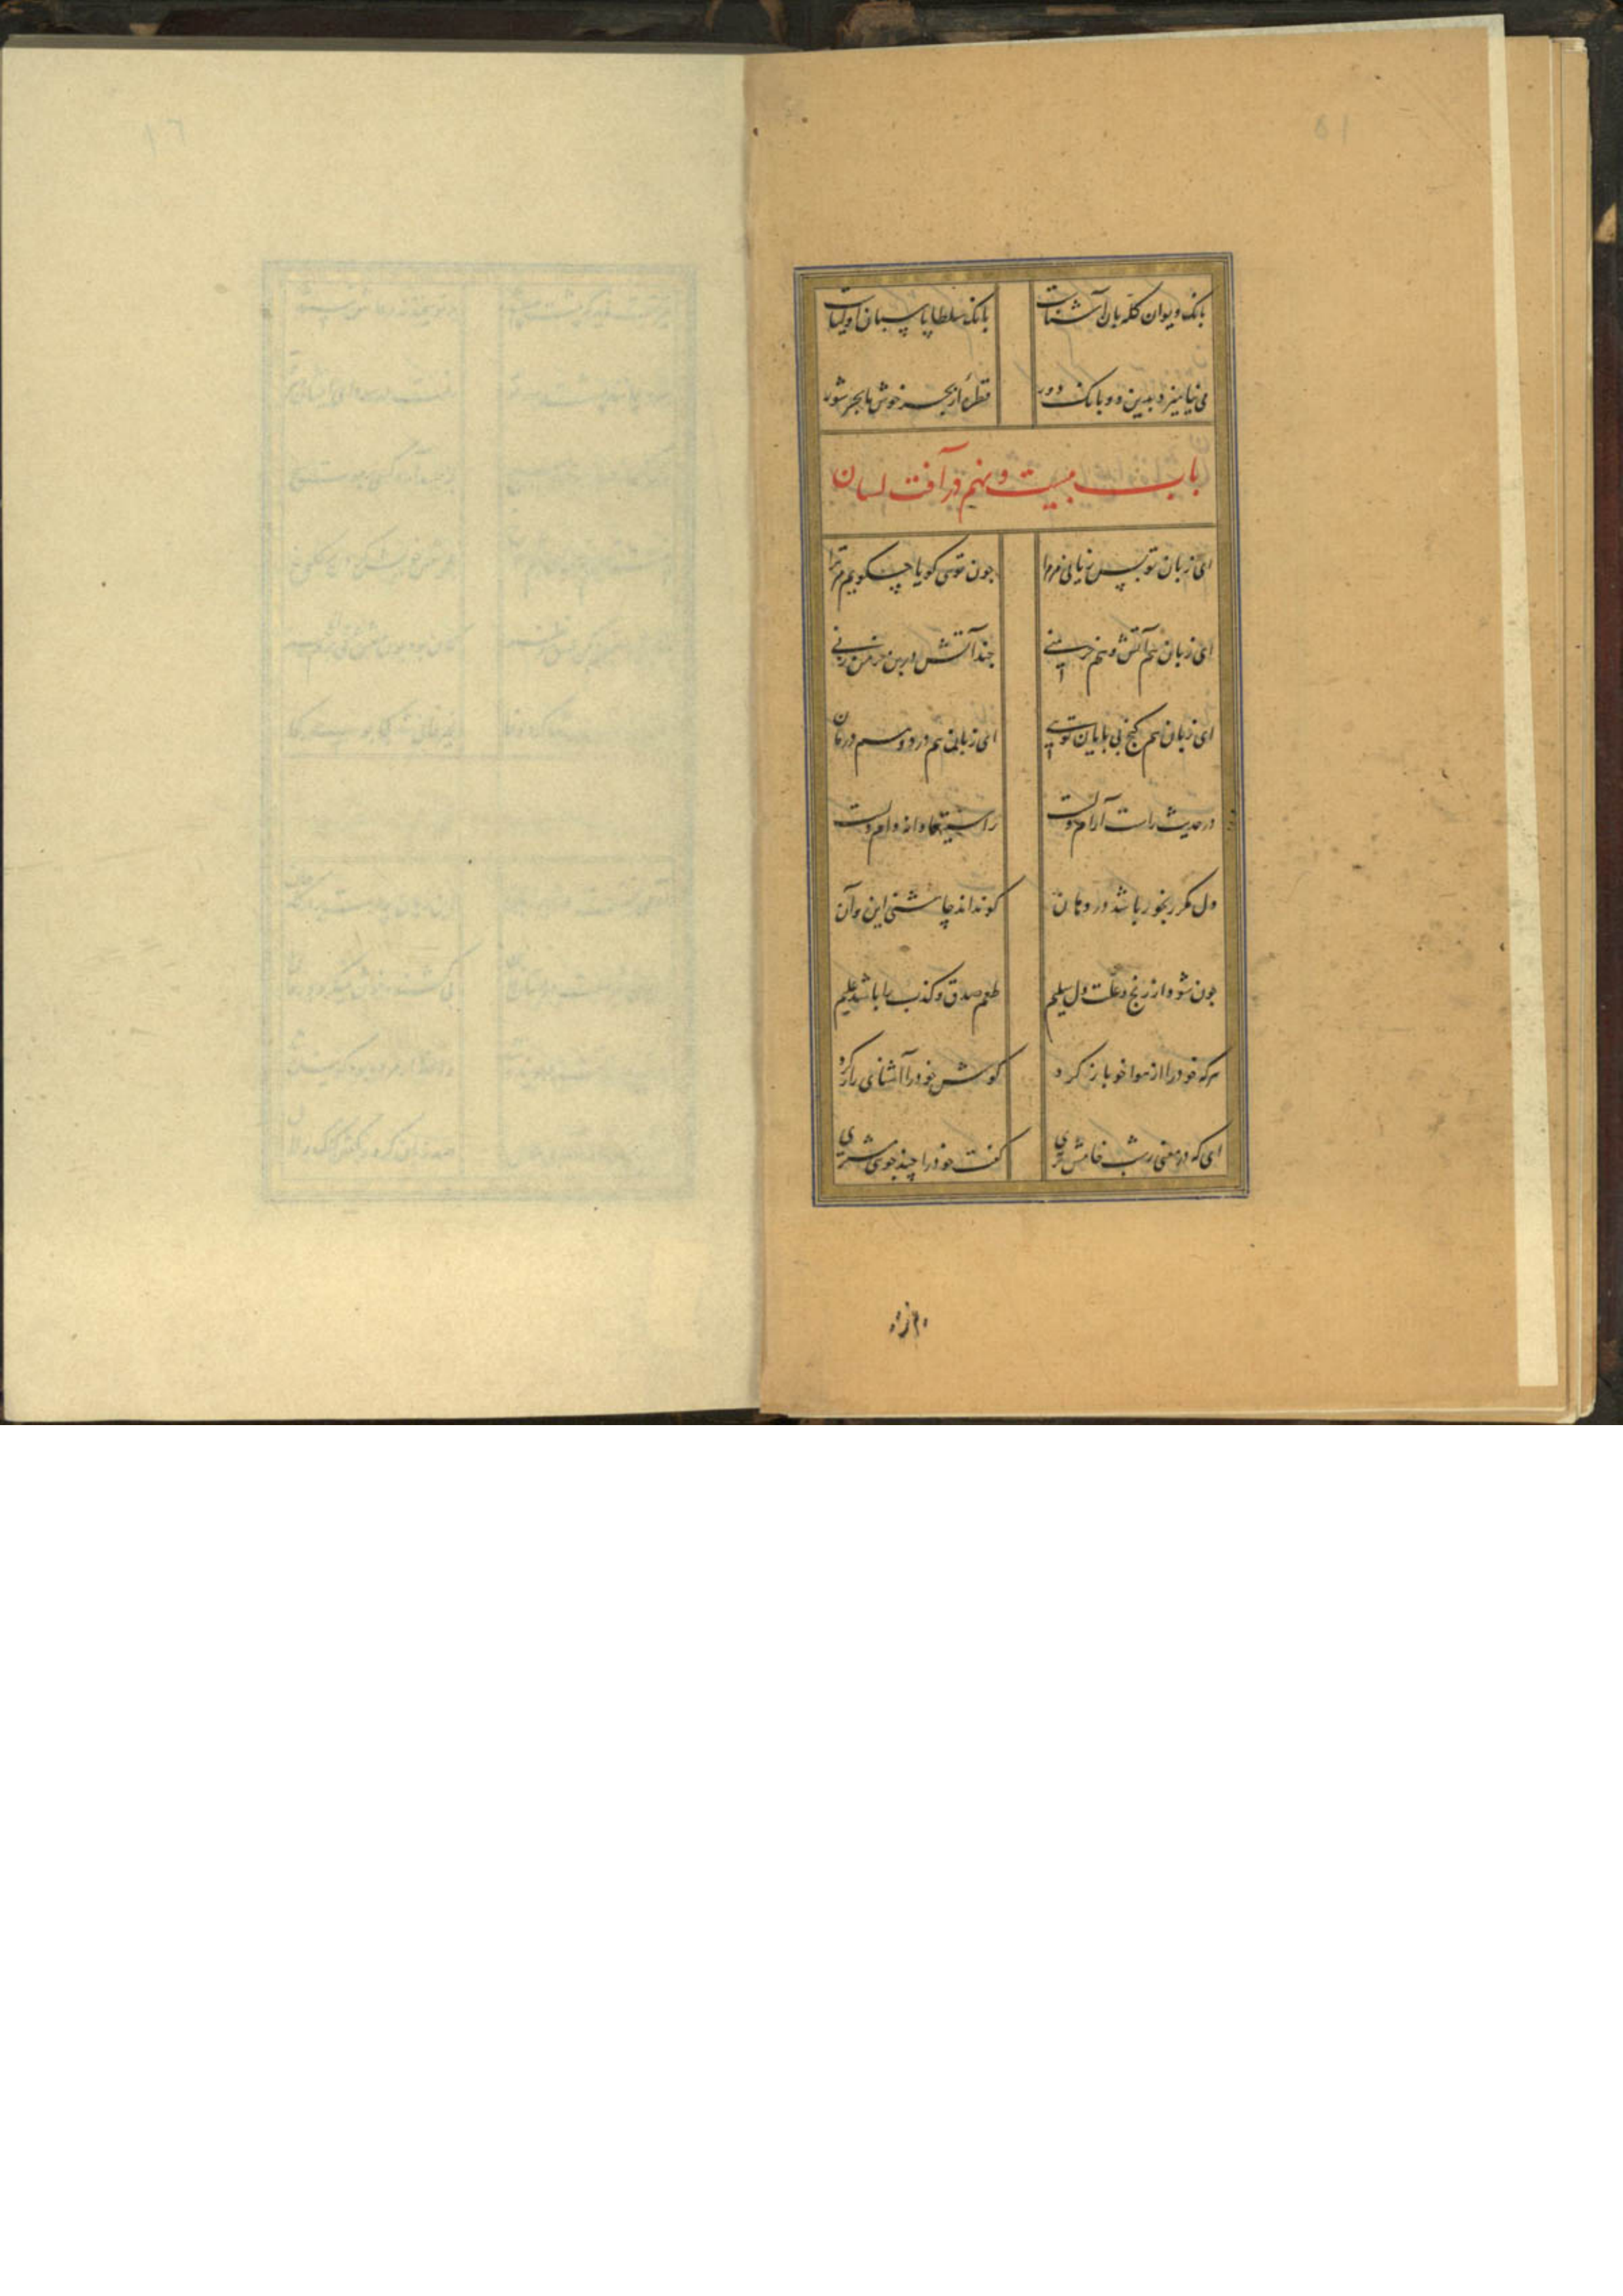 بانک دیوان کله بان آشقیاست
بانک سلطان پاسبان اولیاست
می نیامیزد بدین دو بانک دور
قطرهٔ از بحر خوش با بحر شور
باب بیست و نهم در آفت لسان
ای زبان تو بس زیانی مر مرا
چون توی کویا چه کویم مر ترا
ای زبان هم آتش و هم خرمنی
چند آتش درین خرمن زنی
ای زبان هم کنج بی پایان توی
ای زبان هم درد و هم درمان
در حدیث راست آرام دلست
راستیها دانه دام دلست
دل مکر رنجور باشد در دهان
کو نداند چاشنی این و آن
چون شود از رنج و علت دل سلیم
طعم صدق و کذب را باشد علیم
هرکه خود را از هوا خو باز کرد
کوش خود را آشنای راز کرد
ای که در معنی ز شب خامش تری
کفت خود را چند جوی مشتری